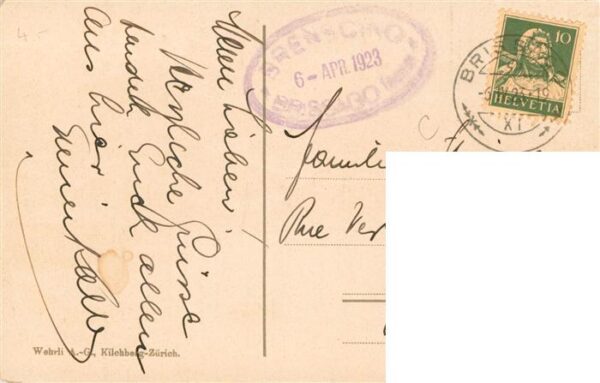 Meine Lieben!
Herzliche Grüsse
sendet Euch allen
aus hier
BRENSCINO
6 - APR. 1923
BRISSAGO
10
HELVETIA
BRISS
XI
Famili
Rue Ver
Wehrli A.-G., Kilchberg-Zürich.